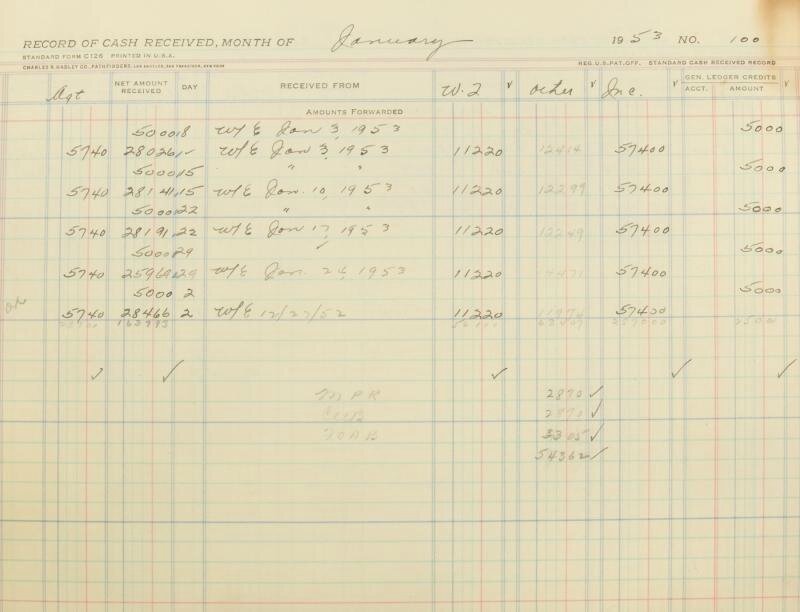 RECORD OF CASH RECEIVED, MONTH OF January 1953 NO. 100
STANDARD FORM C126 PRINTED IN U.S.A.
CHARLES R. HADLEY CO., PATHFINDERS, LOS ANGELES, SAN FRANCISCO, NEW YORK REG. U.S. PAT. OFF. STANDARD CASH RECEIVED RECORD
Agt NET AMOUNT RECEIVED DAY RECEIVED FROM W. 2 √ Other √ Inc. √ GEN. LEDGER CREDITS √
ACCT. AMOUNT
AMOUNTS FORWARDED
5000 8 W/E Jan 3, 1953 5000
5740 28026 W/E Jan 3, 1953 11220 12414 57400
5000 15 " " 5000
5740 28141 15 W/E Jan. 10, 1953 11220 12299 57400
5000 22 " " 5000
5740 28191 22 W/E Jan 17, 1953 11220 12249 57400
5000 29 ✓ 5000
5740 25969 29 W/E Jan. 24, 1953 11220 14471 57400
5000 2 5000
5740 28466 2 W/E 12/27/52 11220 11974 57400
163793
✓ ✓ ✓ ✓ ✓
2870 ✓
2870 ✓
3305 ✓
54362 ✓